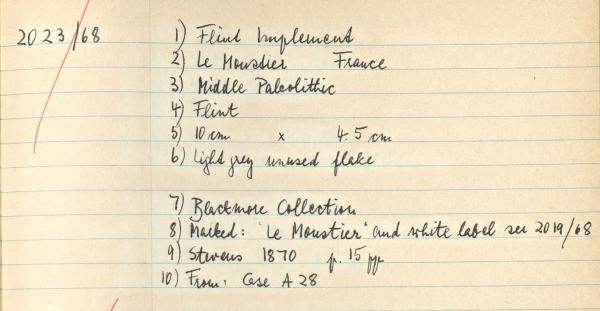 2023/68
1) Flint Implement
2) Le Moustier France
3) Middle Paleolithic
4) Flint
5) 10 cm x 4.5 cm
6) Light grey unused flake
7) Blackmore Collection
8) Marked: 'Le Moustier' and white label see 2019/68
9) Stevens 1870 p. 15 pp
10) From: Case A 28